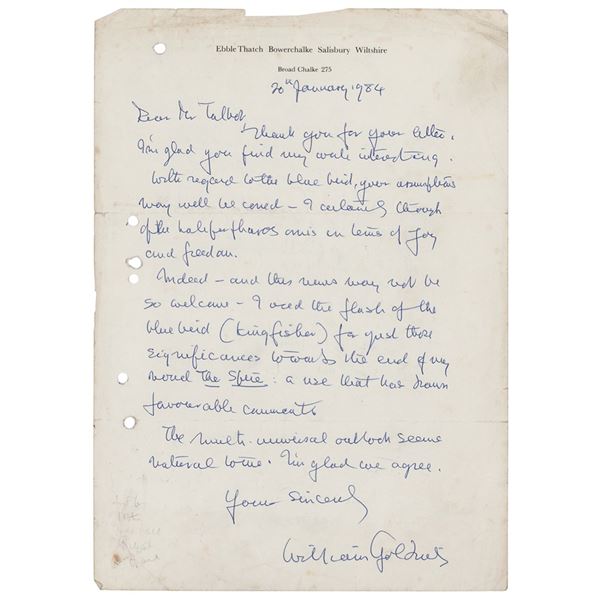 Ebble Thatch Bowerchalke Salisbury Wiltshire
Broad Chalke 275
20th January 1984
Dear Mr Talbot,
Thank you for your letter.
I'm glad you find my work interesting.
With regard to the blue bird, your assumptions
may well be correct – I certainly thought
of the in terms of joy
and freedom.
Indeed – and this news may not be
so welcome – I used the flash of the
blue bird (kingfisher) for just those
significances towards the end of my
novel The Spire: a use that has drawn
favourable comments
The multi-universal outlook seems
natural to me. I'm glad we agree.
Yours sincerely
William Golding